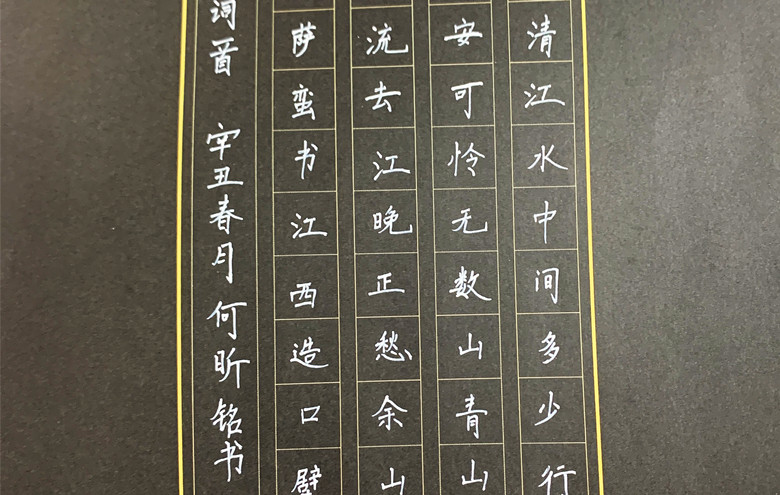 清江水中间多少行
安可怜无数山青山
流去江晚正愁余山
萨蛮书江西造口壁
词首 辛丑春月何昕铭书